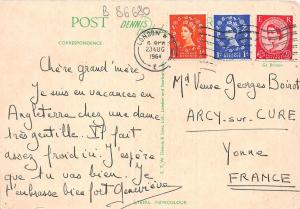 B 86690
POST
DENNIS
CORRESPONDENCE
LONDON
6 PM
23 AUG
1964
E
Chère grand'mère
Je suis en vacances en
Angleterre, chez une dame
très gentille. Il fait
assez froid ici. J'espère
que tu vas bien. Je
t'embrasse bien fort Geneviève
Md Veuve Georges Boirot
ARCY-SUR-CURE
Yonne
FRANCE